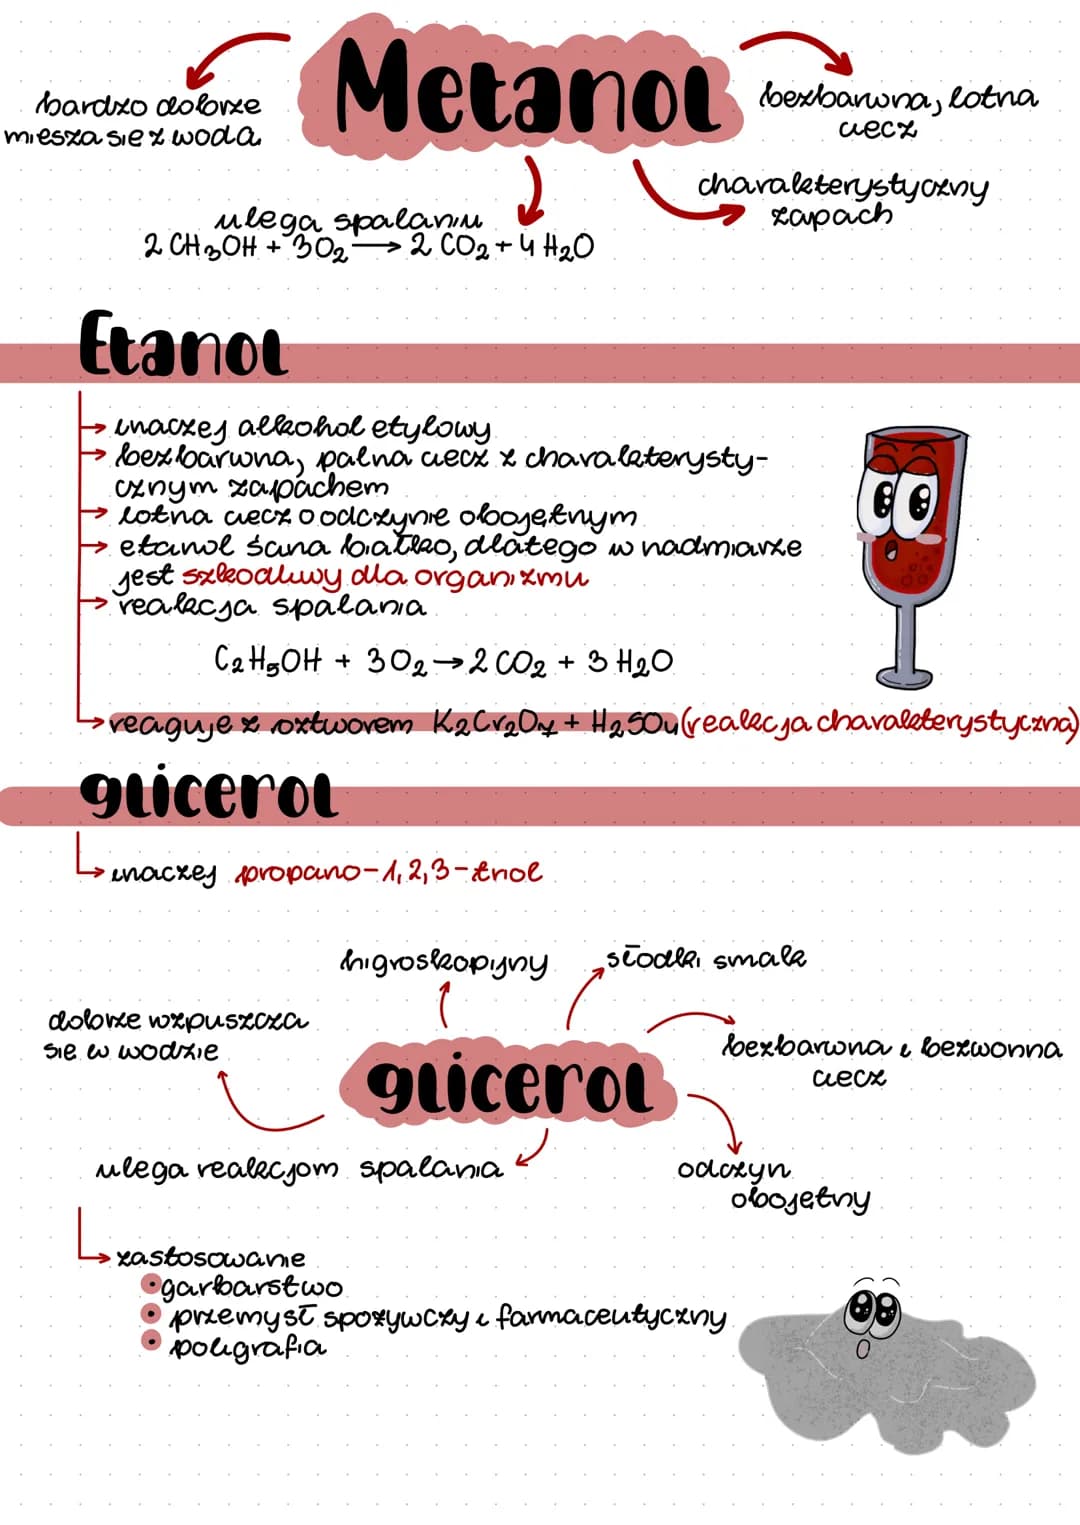 Metanol
bardzo dobrze
miesza się z wodą
bezbarwna, lotna
ciecz
charakterystyczny
zapach
ulega spalaniu
2 CH₃OH + 3O₂ → 2 CO₂ + 4 H₂O
Etanol
inaczej alkohol etylowy
bezbarwna, palna ciecz z charakterysty-
cznym zapachem
lotna ciecz o odczynie obojętnym
etanol ścina białko, dlatego w nadmiarze
jest szkodliwy dla organizmu
reakcja spalania
C₂H₅OH + 3O₂ → 2 CO₂ + 3 H₂O
reaguje z roztworem K₂Cr₂O₇ + H₂SO₄ (reakcja charakterystyczna)
glicerol
inaczej propano-1,2,3-triol
higroskopijny
słodki smak
dobrze wzpuszcza
się w wodzie
bezbarwna i bezwonna
ciecz
glicerol
ulega reakcjom spalania
odczyn
obojętny
zastosowanie
•garbarstwo
• przemysł spożywczy i farmaceutyczny
• poligrafia